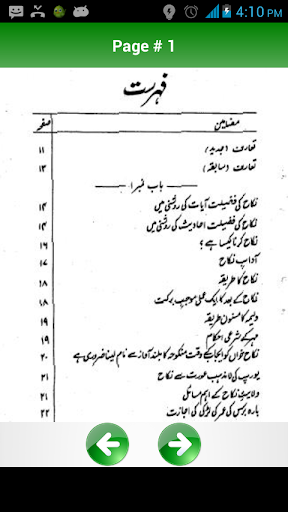 4:10 PM
Page # 1
فہرست
مضامین صفحہ
تعارف (جدید) ۱۱
تعارف (سابقہ) ۱۳
باب نمبر۱
نکاح کی فضیلت آیات کی روشنی میں ۱۴
نکاح کی فضیلت احادیث کی روشنی میں ۱۴
نکاح کرنا کیسا ہے؟ ۱۶
آداب نکاح ۱۷
نکاح کا طریقہ ۱۸
نکاح کے بعد کا ایک عمل موجب برکت ۱۸
ولیمہ کا مسنون طریقہ ۱۹
مہر کے شرعی احکام ۱۹
نکاح خواں کو ایجاب کے وقت منکوحہ کا بلند آواز سے نام لینا ضروری ہے ۲۰
یورپ کی لامذہب عورت سے نکاح ۲۱
ولایت نکاح کے اہم مسائل ۲۱
بارہ برس کی عمر کی لڑکی کی اجازت ۲۲